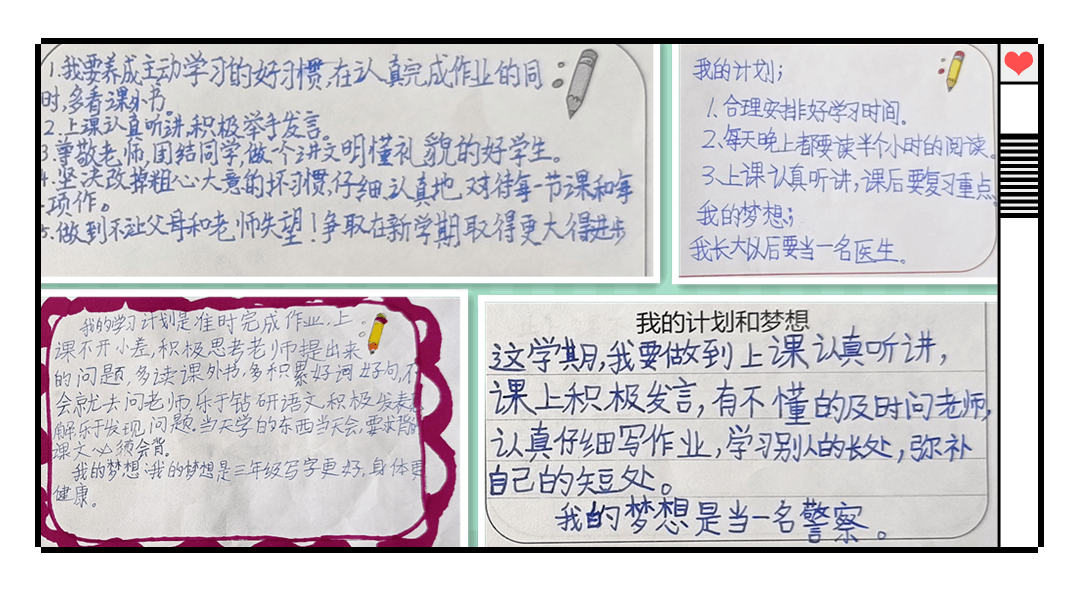 1.我要养成主动学习的好习惯,在认真完成作业的同
时,多看课外书。
2.上课认真听讲,积极举手发言。
3.尊敬老师,团结同学,做一个讲文明懂礼貌的好学生。
4.坚决改掉粗心大意的坏习惯,仔细、认真地对待每一节课和每
一项作。
5.做到不让父母和老师失望!争取在新学期取得更大得进步
我的计划;
1.合理安排好学习时间。
2.每天晚上都要读半个小时的阅读。
3.上课认真听讲,课后要复习重点
我的梦想;
我长大以后要当一名医生。
我的学习计划是准时完成作业,上
课不开小差,积极思考老师提出来
的问题,多读课外书,多积累好词好句,不
会就去问老师,乐于钻研语文,积极发表
解,乐于发现问题.当天学的东西当天会,要求背
课文必须会背。
我的梦想:我的梦想是三年级写字更好,身体更
健康。
我的计划和梦想
这学期,我要做到上课认真听讲,
课上积极发言,有不懂的及时问老师,
认真仔细写作业,学习别人的长处,弥补
自己的短处。
我的梦想是当一名警察。